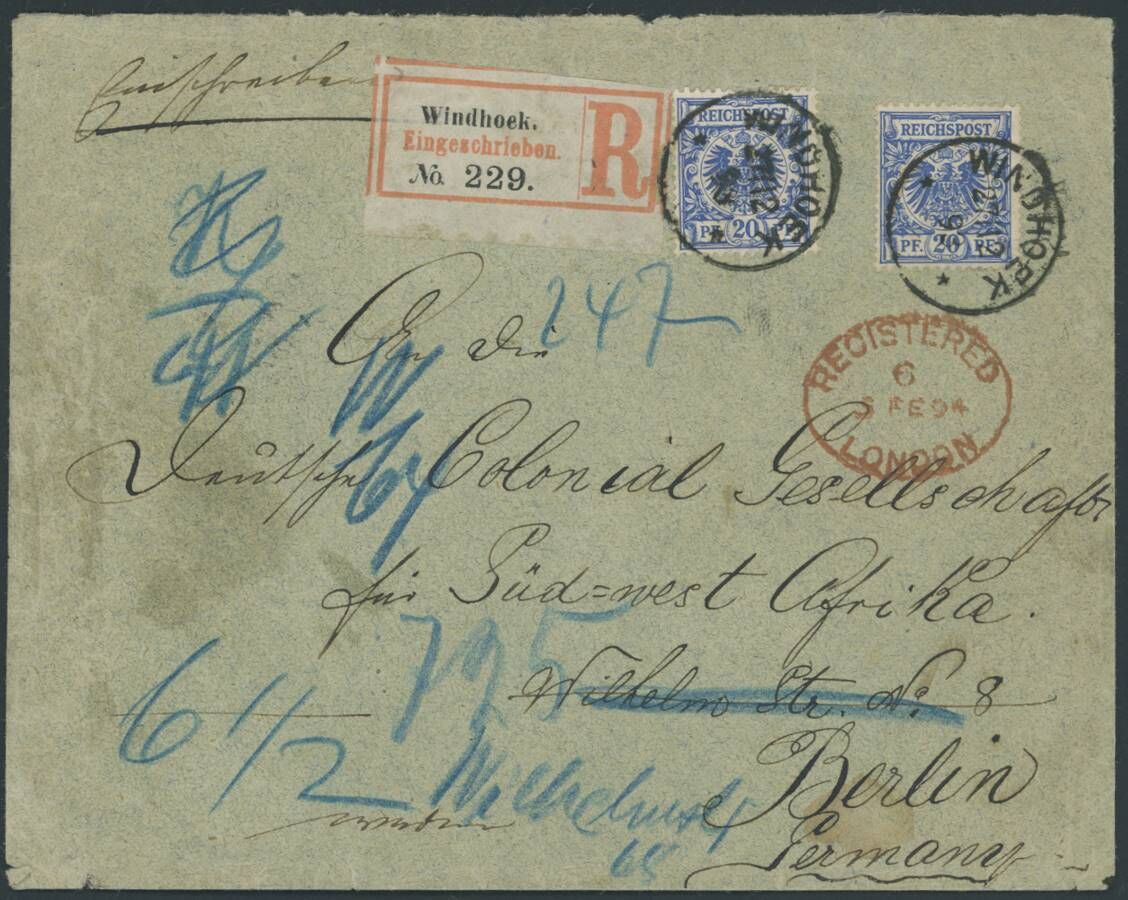 Einschreiben
Windhoek.
Eingeschrieben.
No. 229.
R
REICHSPOST
PF. 20 PF.
WINDHOEK
REICHSPOST
PF. 20 PF.
WINDHOEK
27 12
247
REGISTERED
6
5 FE 94
LONDON
An die
Deutsche Colonial Gesellschaft
für Süd=west Afrika.
725
Wilhelm Str. No: 8
6 1/2
Berlin
Wilhelmstr
68
Germany